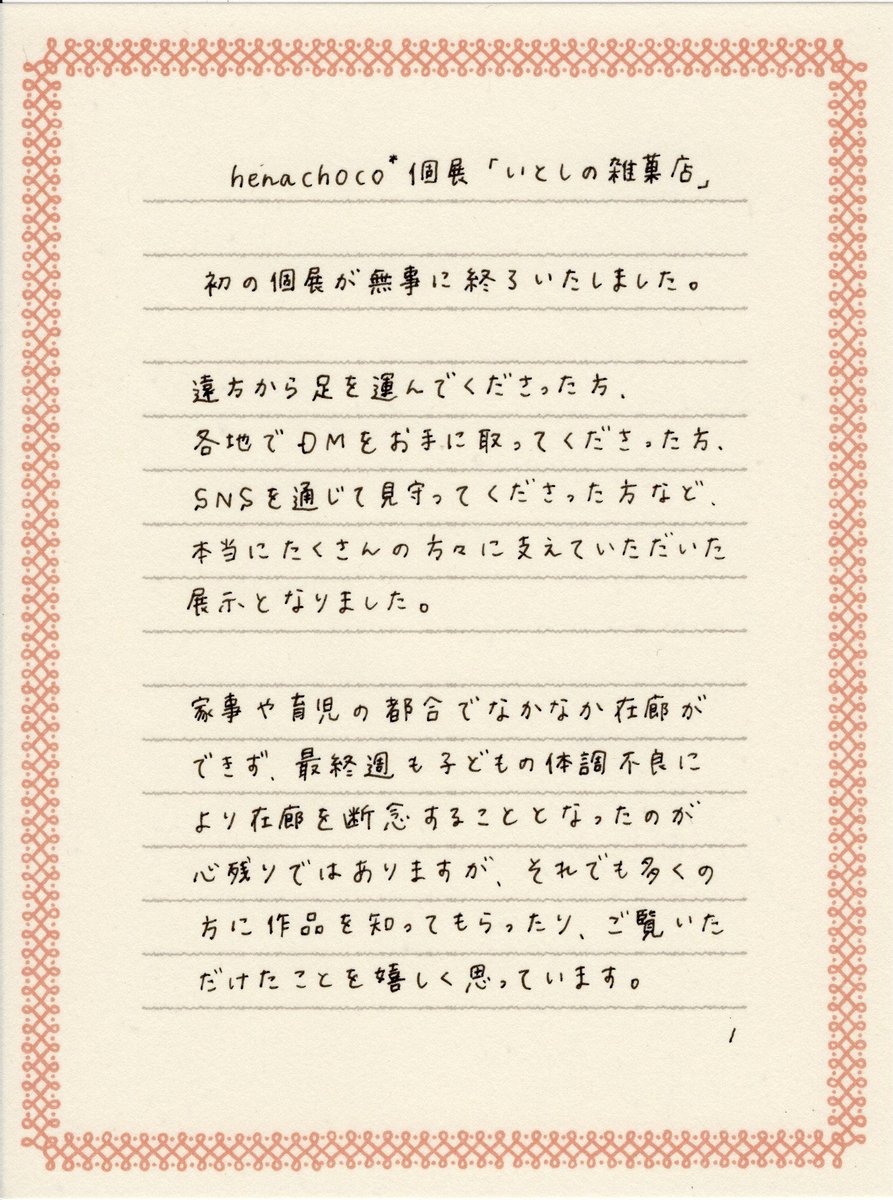 henachoco* 個展「いとしの雑菓店」
初の個展が無事に終了いたしました。
遠方から足を運んでくださった方、
各地でDMをお手に取ってくださった方、
SNSを通じて見守ってくださった方など、
本当にたくさんの方々に支えていただいた
展示となりました。
家事や育児の都合でなかなか在廊が
できず、最終週も子どもの体調不良に
より在廊を断念することとなったのが
心残りではありますが、それでも多くの
方に作品を知ってもらったり、ご覧いた
だけたことを嬉しく思っています。
1